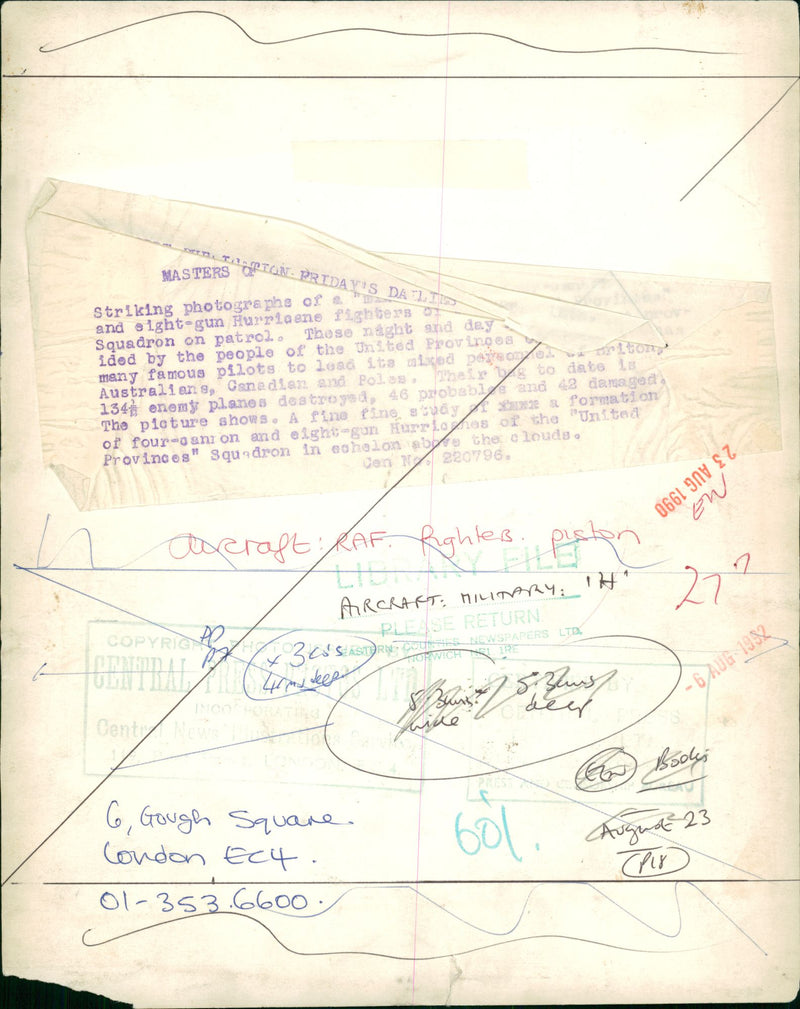 MASTERS OF
FRIDAY'S DAILIES
Striking photographs of a
and eight-gun Hurricane fighters of
Squadron on patrol. These night and day
ided by the people of the United Provinces
many famous pilots to lead its mixed personnel of Briton,
Australians, Canadian and Poles. Their bag to date is
134½ enemy planes destroyed, 46 probables and 42 damaged.
The picture shows. A fine fine study of a formation
of four-cannon and eight-gun Hurricanes of the "United
Provinces" Squadron in echelon above the clouds.
Cen No. 220796.
23 AUG 1990
EW
aircraft: RAF. fighters. piston
LIBRARY FILE
AIRCRAFT: MILITARY: 'H'
27"
PLEASE RETURN
EASTERN COUNTIES NEWSPAPERS LTD.
NORWICH NR1 1RE
- 6 AUG 1992
COPYRIGHT PHOTO
CENTRAL PRESS PHOTOS LTD
INCORPORATING
Central News
LONDON
+ 3 cols
wide
deep
EEN Bodies
August 23
P18
60%.
6, Gough Square.
London EC4.
01-353.6600.